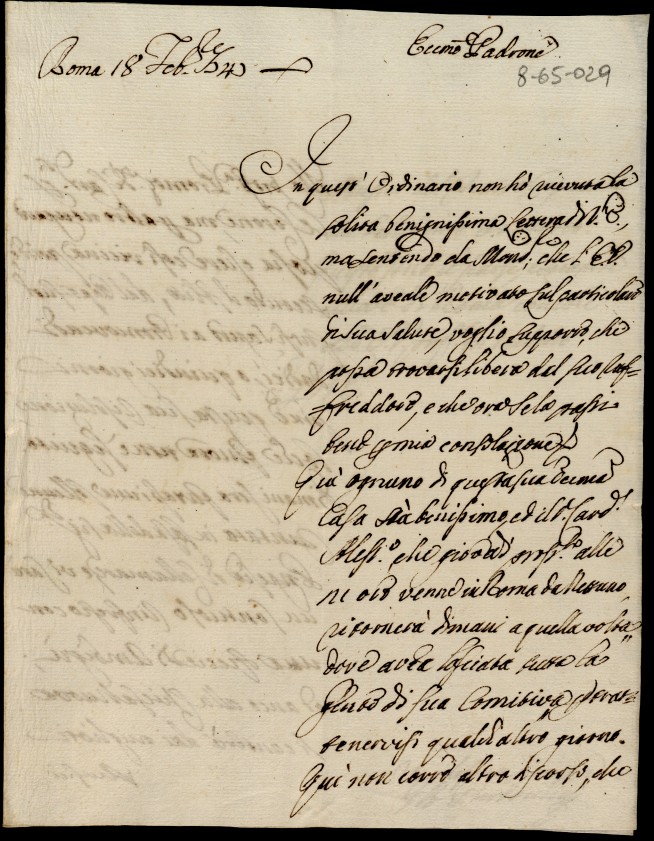 Eccmo Padrone
Roma 18 Feb.
8-65-029
In quest' Ordinario non hò ricevuta la
solita benignissima lettera di V. E.,
ma sentendo da Mons. che l'E.V.
null' aveale motivato sul particolare
di sua salute, voglio supporre, che
possa trovarsi libera dal suo raf=
=freddore, e che ora se la passi
bene p mia consolazione.
Quà ognuno di questa sua Eccma
Casa stà benissimo, ed il S. Card.
Aless.o che giovedì pross.o alle
ore venne in Roma da Nettuno,
ritornerà dimani a quella volta
dove avea lasciata tutta la
Gente di sua Comitiva, p trat=
tenervisi qualch' altro giorno.
Quì non corre altro discorso, che